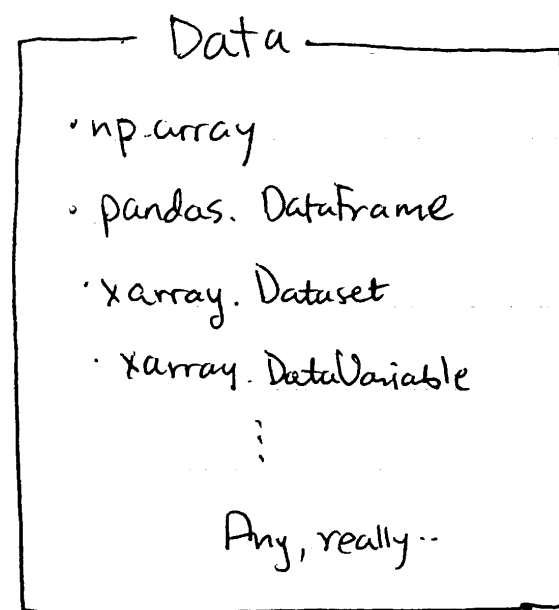 Data
· np.array
· pandas. DataFrame
· xarray. Dataset
· xarray. DataVariable
⋮
Any, really..